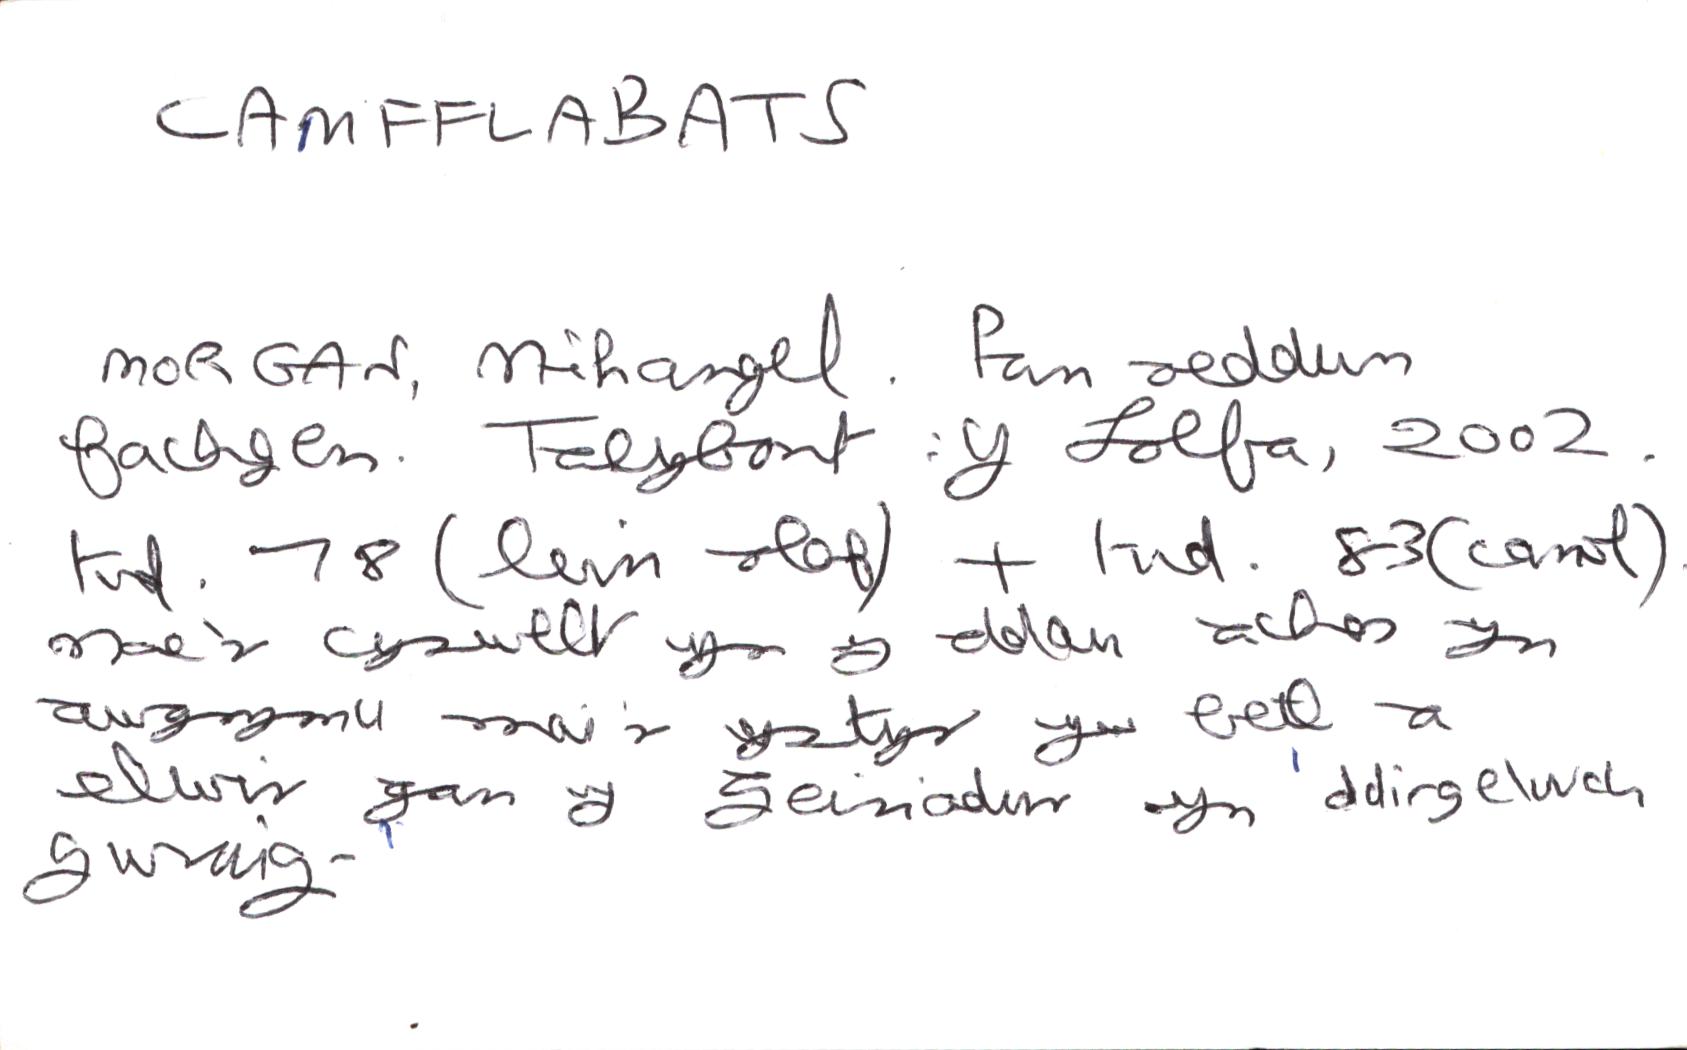 CAMFFLABATS
MORGAN, Mihangel. Pan oeddwn
fachgen. Talybont : Y Lolfa, 2002.
tud. 78 (llein olaf) + tud. 83 (canol).
Mae'r cyswllt yn y ddau achos yn
awgrymu mai'r ystyr yw beth a
elwir gan y Geiriadur yn 'ddirgelwch
gwraig'